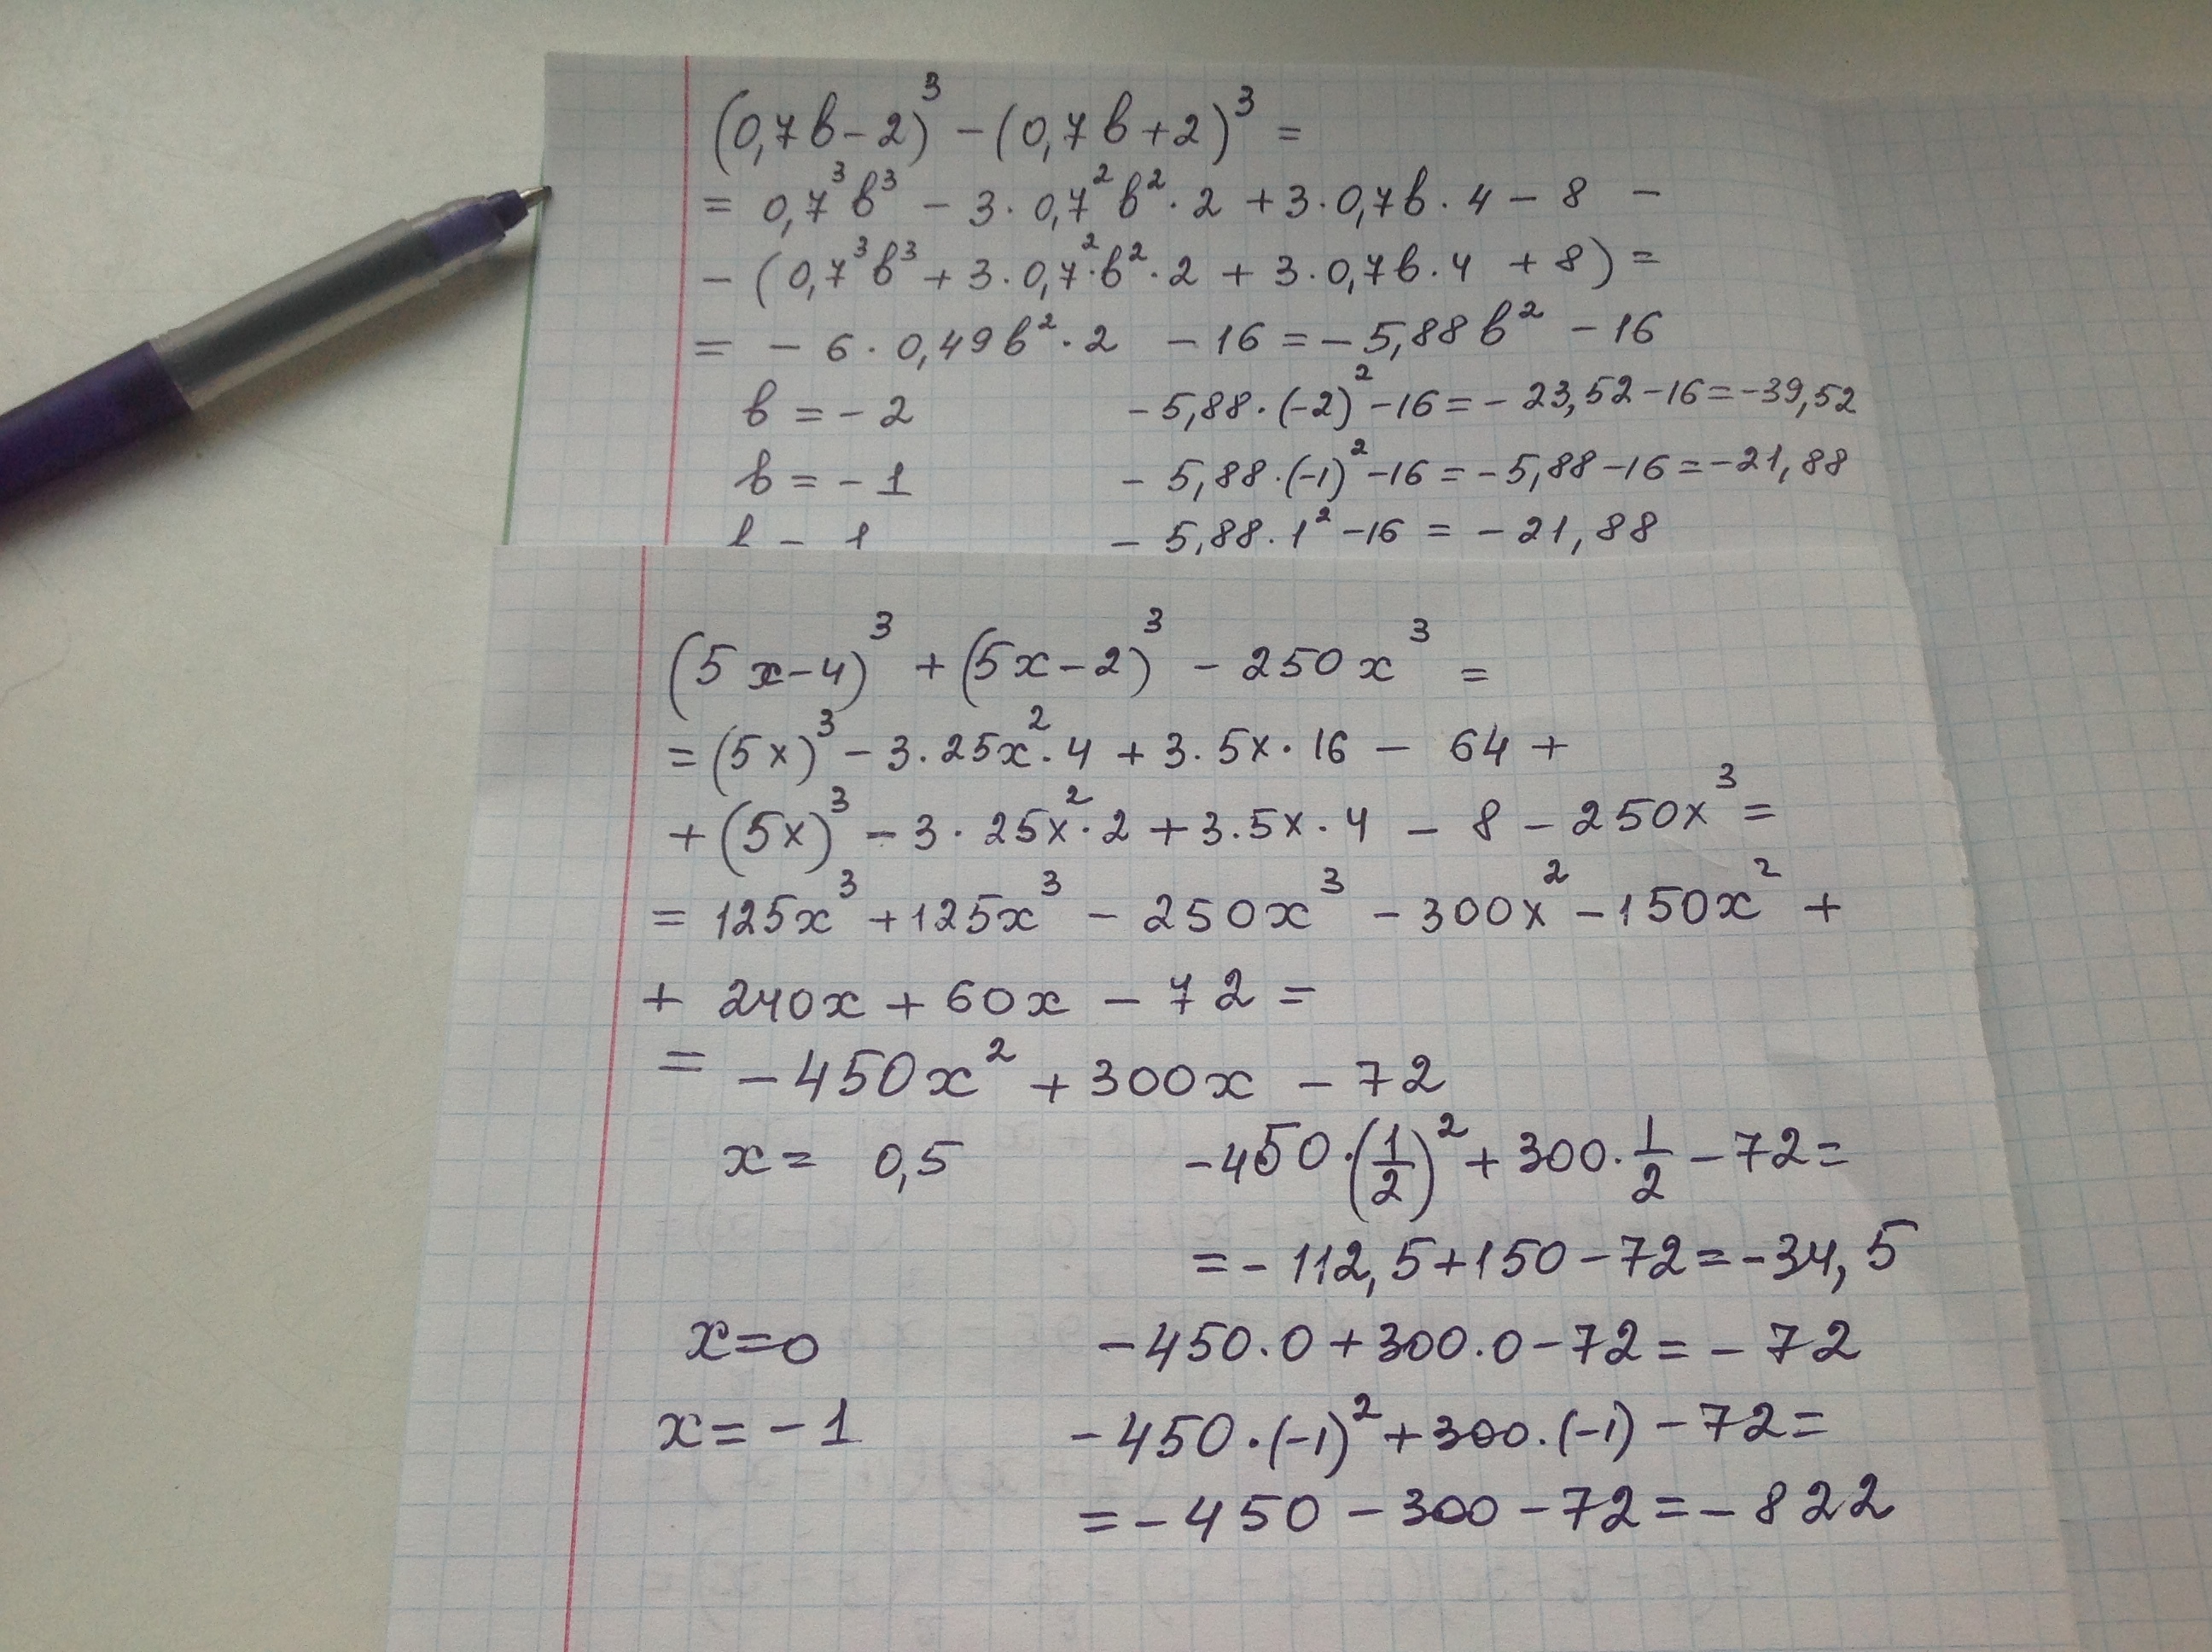 (0,7b-2)³ - (0,7b+2)³ =
= 0,7³b³ - 3·0,7²b²·2 + 3·0,7b·4 - 8 -
- (0,7³b³ + 3·0,7²·b²·2 + 3·0,7b·4 + 8) =
= - 6·0,49b²·2 - 16 = - 5,88b² - 16
b = - 2 - 5,88·(-2)² - 16 = - 23,52 - 16 = -39,52
b = - 1 - 5,88·(-1)² - 16 = - 5,88 - 16 = -21,88
- 5,88·1² - 16 = - 21,88
(5x-4)³ + (5x-2)³ - 250x³ =
= (5x)³ - 3·25x²·4 + 3·5x·16 - 64 +
+ (5x)³ - 3·25x²·2 + 3·5x·4 - 8 - 250x³ =
= 125x³ + 125x³ - 250x³ - 300x² - 150x² +
+ 240x + 60x - 72 =
= - 450x² + 300x - 72
x = 0,5 - 450·(1/2)² + 300·1/2 - 72 =
= - 112,5 + 150 - 72 = - 34,5
x = 0 - 450·0 + 300·0 - 72 = - 72
x = - 1 - 450·(-1)² + 300·(-1) - 72 =
= - 450 - 300 - 72 = - 822